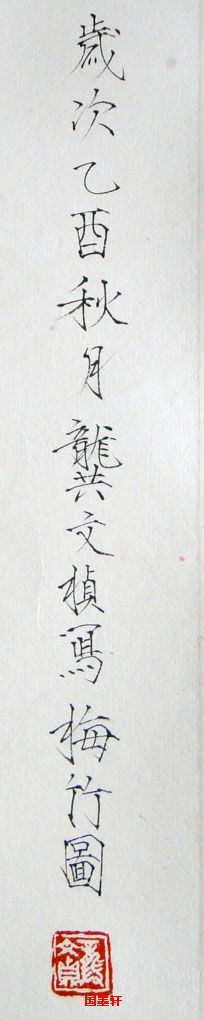 歲次乙酉秋月龔文楨寫梅竹圖
国墨轩